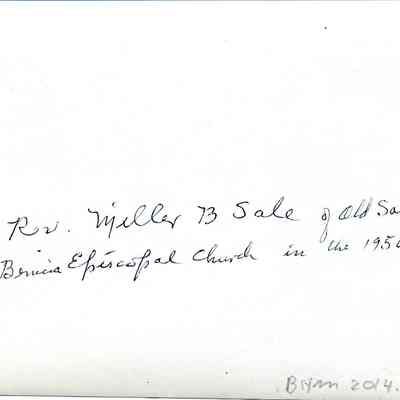 Rev. Miller B Sale of Old Sa
Benicia Episcopal Church in the 195
BHM 2014.